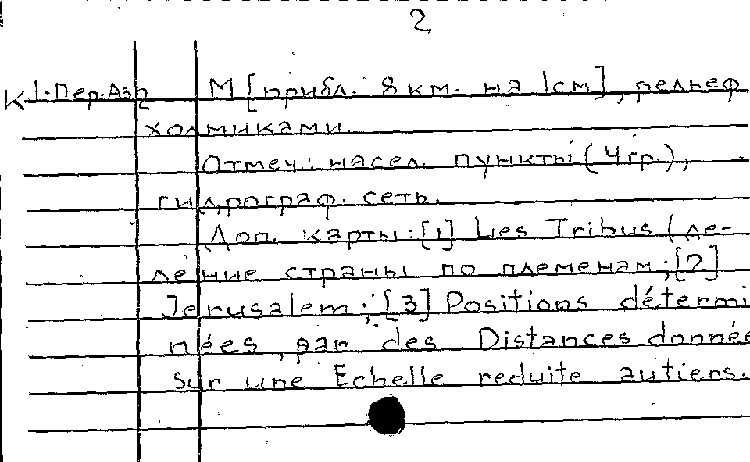 2
К 1-Пер.Аз2 М [прибл. 8 км. на 1см], рельеф
холмиками.
Отмеч: насел. пункты (4 гр.),
гидрограф. сеть.
Доп. карты: [1] Les Tribus (де-
ление страны по племенам; [2]
Jerusalem; [3] Positions détermi
nées par des Distances donnée
sur une Echelle reduite autiers.